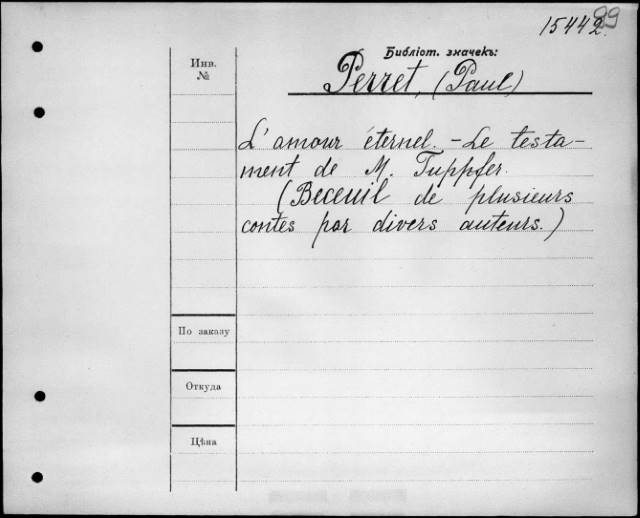 99
15442.
Библіот. значекъ:
Инв.
№
Perret, (Paul)
L'amour éternel. - Le testa-
ment de M. Tuppfer.
(Receuil de plusieurs
contes par divers auteurs.)
По заказу
Откуда
Цѣна